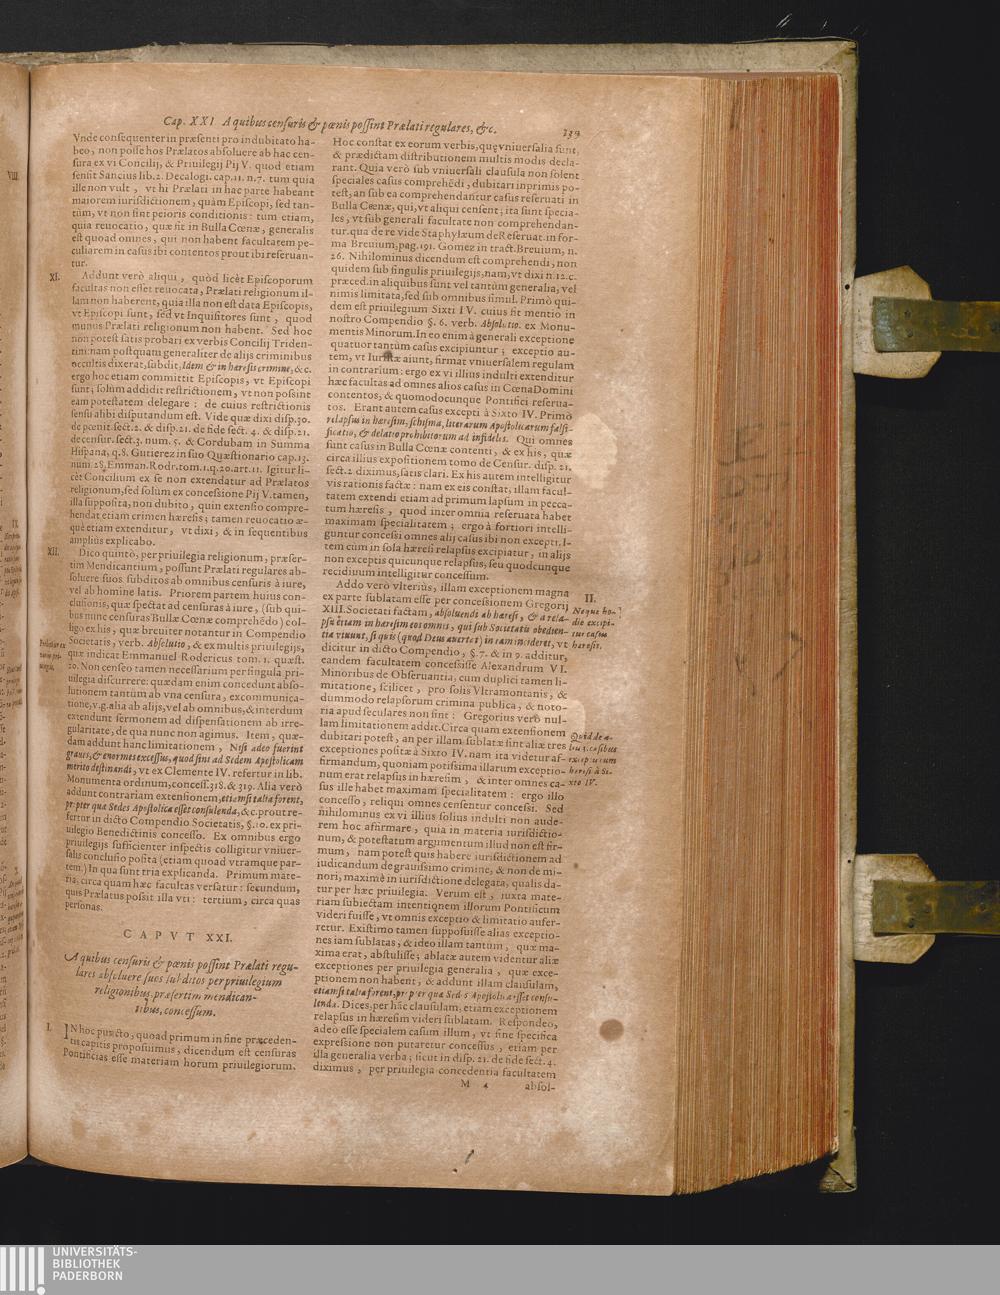 Cap. XXI A quibus censuris & pœnis possint Prælati regulares, &c. 139
Vnde consequenter in præsenti pro indubitato ha-
beo, non posse hos Prælatos absoluere ab hac cen-
sura ex vi Concilij, & Priuilegij Pij V. quod etiam
sensit Sancius lib.2. Decalogi. cap.11. n.7. tum quia
ille non vult, vt hi Prælati in hac parte habeant
maiorem iurisdictionem, quàm Episcopi, sed tan-
tùm, vt non sint peioris conditionis : tum etiam,
quia reuocatio, quæ fit in Bulla Cœnæ, generalis
est quoad omnes, qui non habent facultatem pe-
culiarem in casus ibi contentos prout ibi referuan-
tur.
XI. Addunt verò aliqui, quòd licèt Episcoporum
facultas non esset reuocata, Prælati religionum il-
lam non haberent, quia illa non est data Episcopis,
vt Episcopi sunt, sed vt Inquisitores sunt, quod
munus Prælati religionum non habent. Sed hoc
non potest satis probari ex verbis Concilij Triden-
tini: nam postquam generaliter de alijs criminibus
occultis dixerat, subdit, Idem & in hæresis crimine, &c.
ergo hoc etiam committit Episcopis, vt Episcopi
sunt; solùm addidit restrictionem, vt non possint
eam potestatem delegare : de cuius restrictionis
sensu alibi disputandum est. Vide quæ dixi disp.30.
de pœnit. sect.2. & disp.21. de fide sect. 4. & disp.21.
de censur. sect.3. num. 5. & Cordubam in Summa
Hispana, q.8. Gutierez in suo Quæstionario cap.13.
num. 28. Emman. Rodr. tom.1.q.20.art.11. Igitur li-
cèt Concilium ex se non extendatur ad Prælatos
religionum, sed solum ex concessione Pij V. tamen,
illa supposita, non dubito, quin extensio compre-
hendat etiam crimen hæresis; tamen reuocatio æ-
què etiam extenditur, vt dixi, & in sequentibus
ampliùs explicabo.
XII. Dico quintò, per priuilegia religionum, præser-
tim Mendicantium, possunt Prælati regulares ab-
soluere suos subditos ab omnibus censuris à iure,
vel ab homine latis. Priorem partem huius con-
clusionis, quæ spectat ad censuras à iure, (sub qui-
bus nunc censuras Bullæ Cœnæ comprehẽdo) col-
ligo ex his, quæ breuiter notantur in Compendio
Societatis, verb. Absolutio, & ex multis priuilegijs,
quæ indicat Emmanuel Rodericus tom. 1. quæst.
20. Non censeo tamen necessarium per singula pri-
uilegia discurrere: quædam enim concedunt abso-
lutionem tantùm ab vna censura, excommunica-
tione, v.g. alia ab alijs, vel ab omnibus, & interdum
extendunt sermonem ad dispensationem ab irre-
gularitate, de qua nunc non agimus. Item, quæ-
dam addunt hanc limitationem, Nisi adeo fuerint
graues, & enormes excessus, quod sint ad Sedem Apostolicam
merito destinandi, vt ex Clemente IV. refertur in lib.
Monumenta ordinum, concess. 318. & 319. Alia verò
addunt contrariam extensionem, etiamsi talia forent,
propter quæ Sedes Apostolica esset consulenda, &c. prout re-
fertur in dicto Compendio Societatis, §.10. ex pri-
uilegio Benedictinis concesso. Ex omnibus ergo
priuilegijs sufficienter inspectis colligitur vniuer-
salis conclusio posita (etiam quoad vtramque par-
tem.) In qua sunt tria explicanda. Primum mate-
ria, circa quam hæc facultas versatur : secundum,
quis Prælatus possit illa vti : tertium, circa quas
personas.
CAPVT XXI.
A quibus censuris & pœnis possint Prælati regu-
lares absoluere suos subditos per priuilegium
religionibus, præsertim mendican-
tibus, concessum.
I. IN hoc puncto, quoad primum in fine præceden-
tis capitis proposuimus, dicendum est censuras
Pontificias esse materiam horum priuilegiorum.
Hoc constat ex eorum verbis, quę vniuersalia sunt,
& prædictam distributionem multis modis decla-
rant. Quia verò sub vniuersali clausula non solent
speciales casus comprehẽdi, dubitari inprimis po-
test, an sub ea comprehendantur casus reseruati in
Bulla Cœnæ, qui, vt aliqui censent; ita sunt specia-
les, vt sub generali facultate non comprehendan-
tur. qua de re vide Staphylæum de Reseruat. in for-
ma Breuium, pag.191. Gomez in tract. Breuium, n.
26. Nihilominus dicendum est comprehendi, non
quidem sub singulis priuilegijs, nam, vt dixi n.12.c.
præced. in aliquibus sunt vel tantùm generalia, vel
nimis limitata, sed sub omnibus simul. Primò qui-
dem est priuilegium Sixti IV. cuius fit mentio in
nostro Compendio §. 6. verb. Absolutio. ex Monu-
mentis Minorum. In eo enim à generali exceptione
quatuor tantùm casus excipiuntur ; exceptio au-
tem, vt Iuristæ aiunt, firmat vniuersalem regulam
in contrarium: ergo ex vi illius indulti extenditur
hæc facultas ad omnes alios casus in Cœna Domini
contentos, & quomodocunque Pontifici reserua-
tos. Erant autem casus excepti à Sixto IV. Primò
relapsus in hæresim, schisma, literarum Apostolicarum falsi-
ficatio, & delatio prohibitorum ad infideles. Qui omnes
sunt casus in Bulla Cœnæ contenti, & ex his, quæ
circa illius expositionem tomo de Censur. disp. 21.
sect.2. diximus, satis clari. Ex his autem intelligitur
vis rationis factæ : nam ex eis constat, illam facul-
tatem extendi etiam ad primum lapsum in pecca-
tum hæresis, quod inter omnia reseruata habet
maximam specialitatem ; ergo à fortiori intelli-
guntur concessi omnes alij casus ibi non excepti. I-
tem cum in sola hæresi relapsus excipiatur, in alijs
non exceptis quicunque relapsus, seu quodcunque
recidiuum intelligitur concessum.
II. Addo verò vlteriùs, illam exceptionem magna
ex parte sublatam esse per concessionem Gregorij
XIII. Societati factam, absoluendi ab hæresi, & à rela-
psu etiam in hæresim eos omnes, qui sub Societatis obedien-
tia viuunt, si quis (quod Deus auertat) in eam incideret, vt
dicitur in dicto Compendio, §.7. & in 9. additur,
eandem facultatem concessisse Alexandrum VI.
Minoribus de Obseruantia, cum duplici tamen li-
mitatione, scilicet, pro solis Vltramontanis, &
dummodo relapsorum crimina publica, & noto-
ria apud seculares non sint : Gregorius verò nul-
lam limitationem addit. Circa quam extensionem
dubitari potest, an per illam sublatæ sint aliæ tres
exceptiones positæ à Sixto IV. nam ita videtur af-
firmandum, quoniam potissima illarum exceptio-
num erat relapsus in hæresim, & inter omnes ca-
sus ille habet maximam specialitatem : ergo illo
concesso, reliqui omnes censentur concessi. Sed
nihilominus ex vi illius solius indulti non aude-
rem hoc afirmare, quia in materia iurisdictio-
num, & potestatum argumentum illud non est fir-
mum, nam potest quis habere iurisdictionem ad
iudicandum de grauissimo crimine, & non de mi-
nori, maximè in iurisdictione delegata, qualis da-
tur per hæc priuilegia. Verum est, iuxta mate-
riam subiectam intentionem illorum Pontificum
videri fuisse, vt omnis exceptio & limitatio aufer-
retur. Existimo tamen supposuisse alias exceptio-
nes iam sublatas, & ideo illam tantùm, quæ ma-
xima erat, abstulisse; ablatæ autem videntur aliæ
exceptiones per priuilegia generalia, quæ exce-
ptionem non habent ; & addunt illam clausulam,
etiamsi talia forent, propter quæ Sedes Apostolica esset consu-
lenda. Dices, per hãc clausulam, etiam exceptionem
relapsus in hæresim videri sublatam. Respondeo,
adeò esse specialem casum illum, vt sine specifica
expressione non putaretur concessus, etiam per
illa generalia verba ; sicut in disp. 21. de fide sect. 4.
diximus, per priuilegia concedentia facultatem
M 4 absol-
Neque ho-
die excipi-
tur casus
hæresis.
Quid de a-
lijs 3. casibus
exceptis cum
hæresi à Si-
xto IV.
UNIVERSITÄTS-
BIBLIOTHEK
PADERBORN